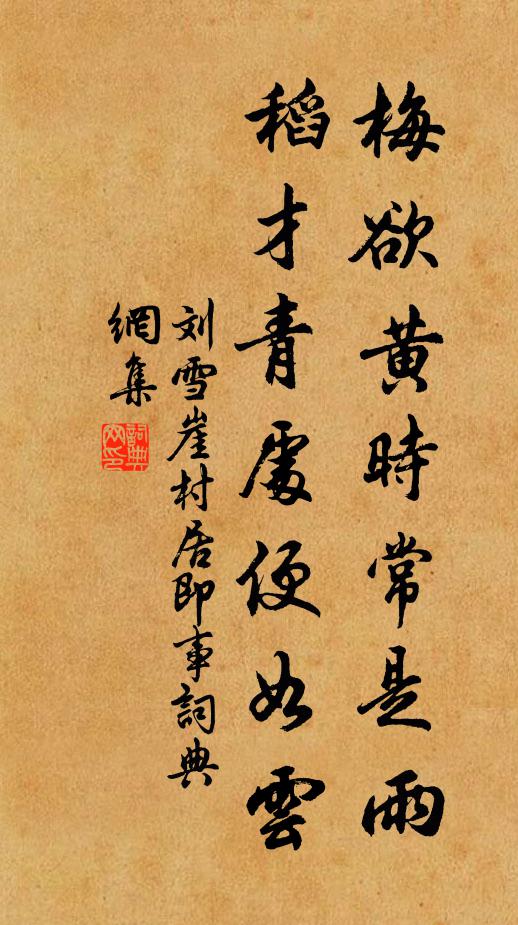 梅欲黄時常是雨
稻才青處便如雲
刘雪崖村居即事詞典
網集
詞典
网印